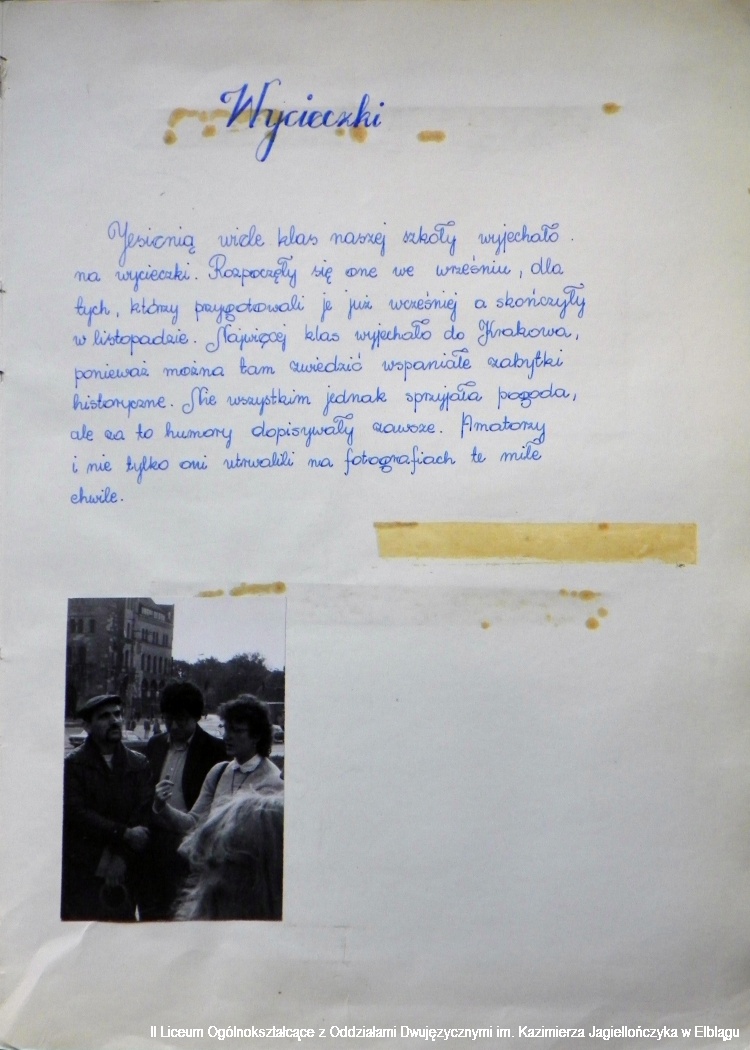 Wycieczki
Jesienią wiele klas naszej szkoły wyjechało
na wycieczki. Rozpoczęły się one we wrześniu, dla
tych, którzy przygotowali je już wcześniej a skończyły
w listopadzie. Najwięcej klas wyjechało do Krakowa,
ponieważ można tam zwiedzić wspaniałe zabytki
historyczne. Nie wszystkim jednak sprzyjała pogoda,
ale za to humory dopisywały zawsze. Amatorzy
i nie tylko oni utrwalili na fotografiach te miłe
chwile.
II Liceum Ogólnokształcące z Oddziałami Dwujęzycznymi im. Kazimierza Jagiellończyka w Elblągu